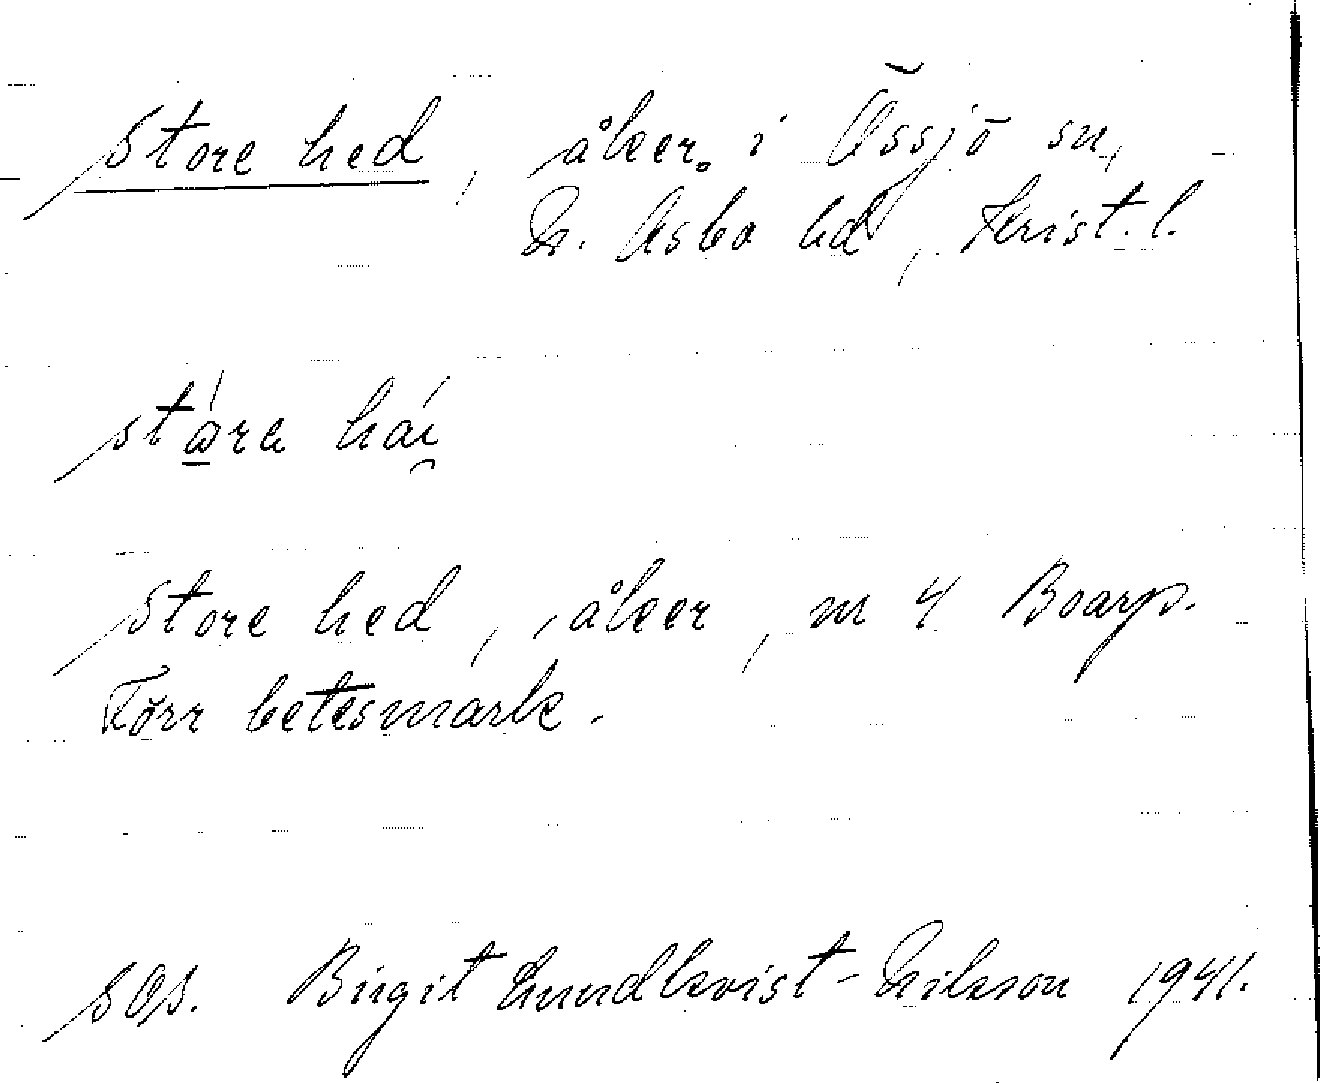 Store hed, åker i Össjö sn,
N. Åsbo hd, Krist. l.
stǻra hái̯
Store hed, åker, m 4 Boarp.
Förr betesmark.
SOS. Birgit Lundkvist-Nilsson 1941.